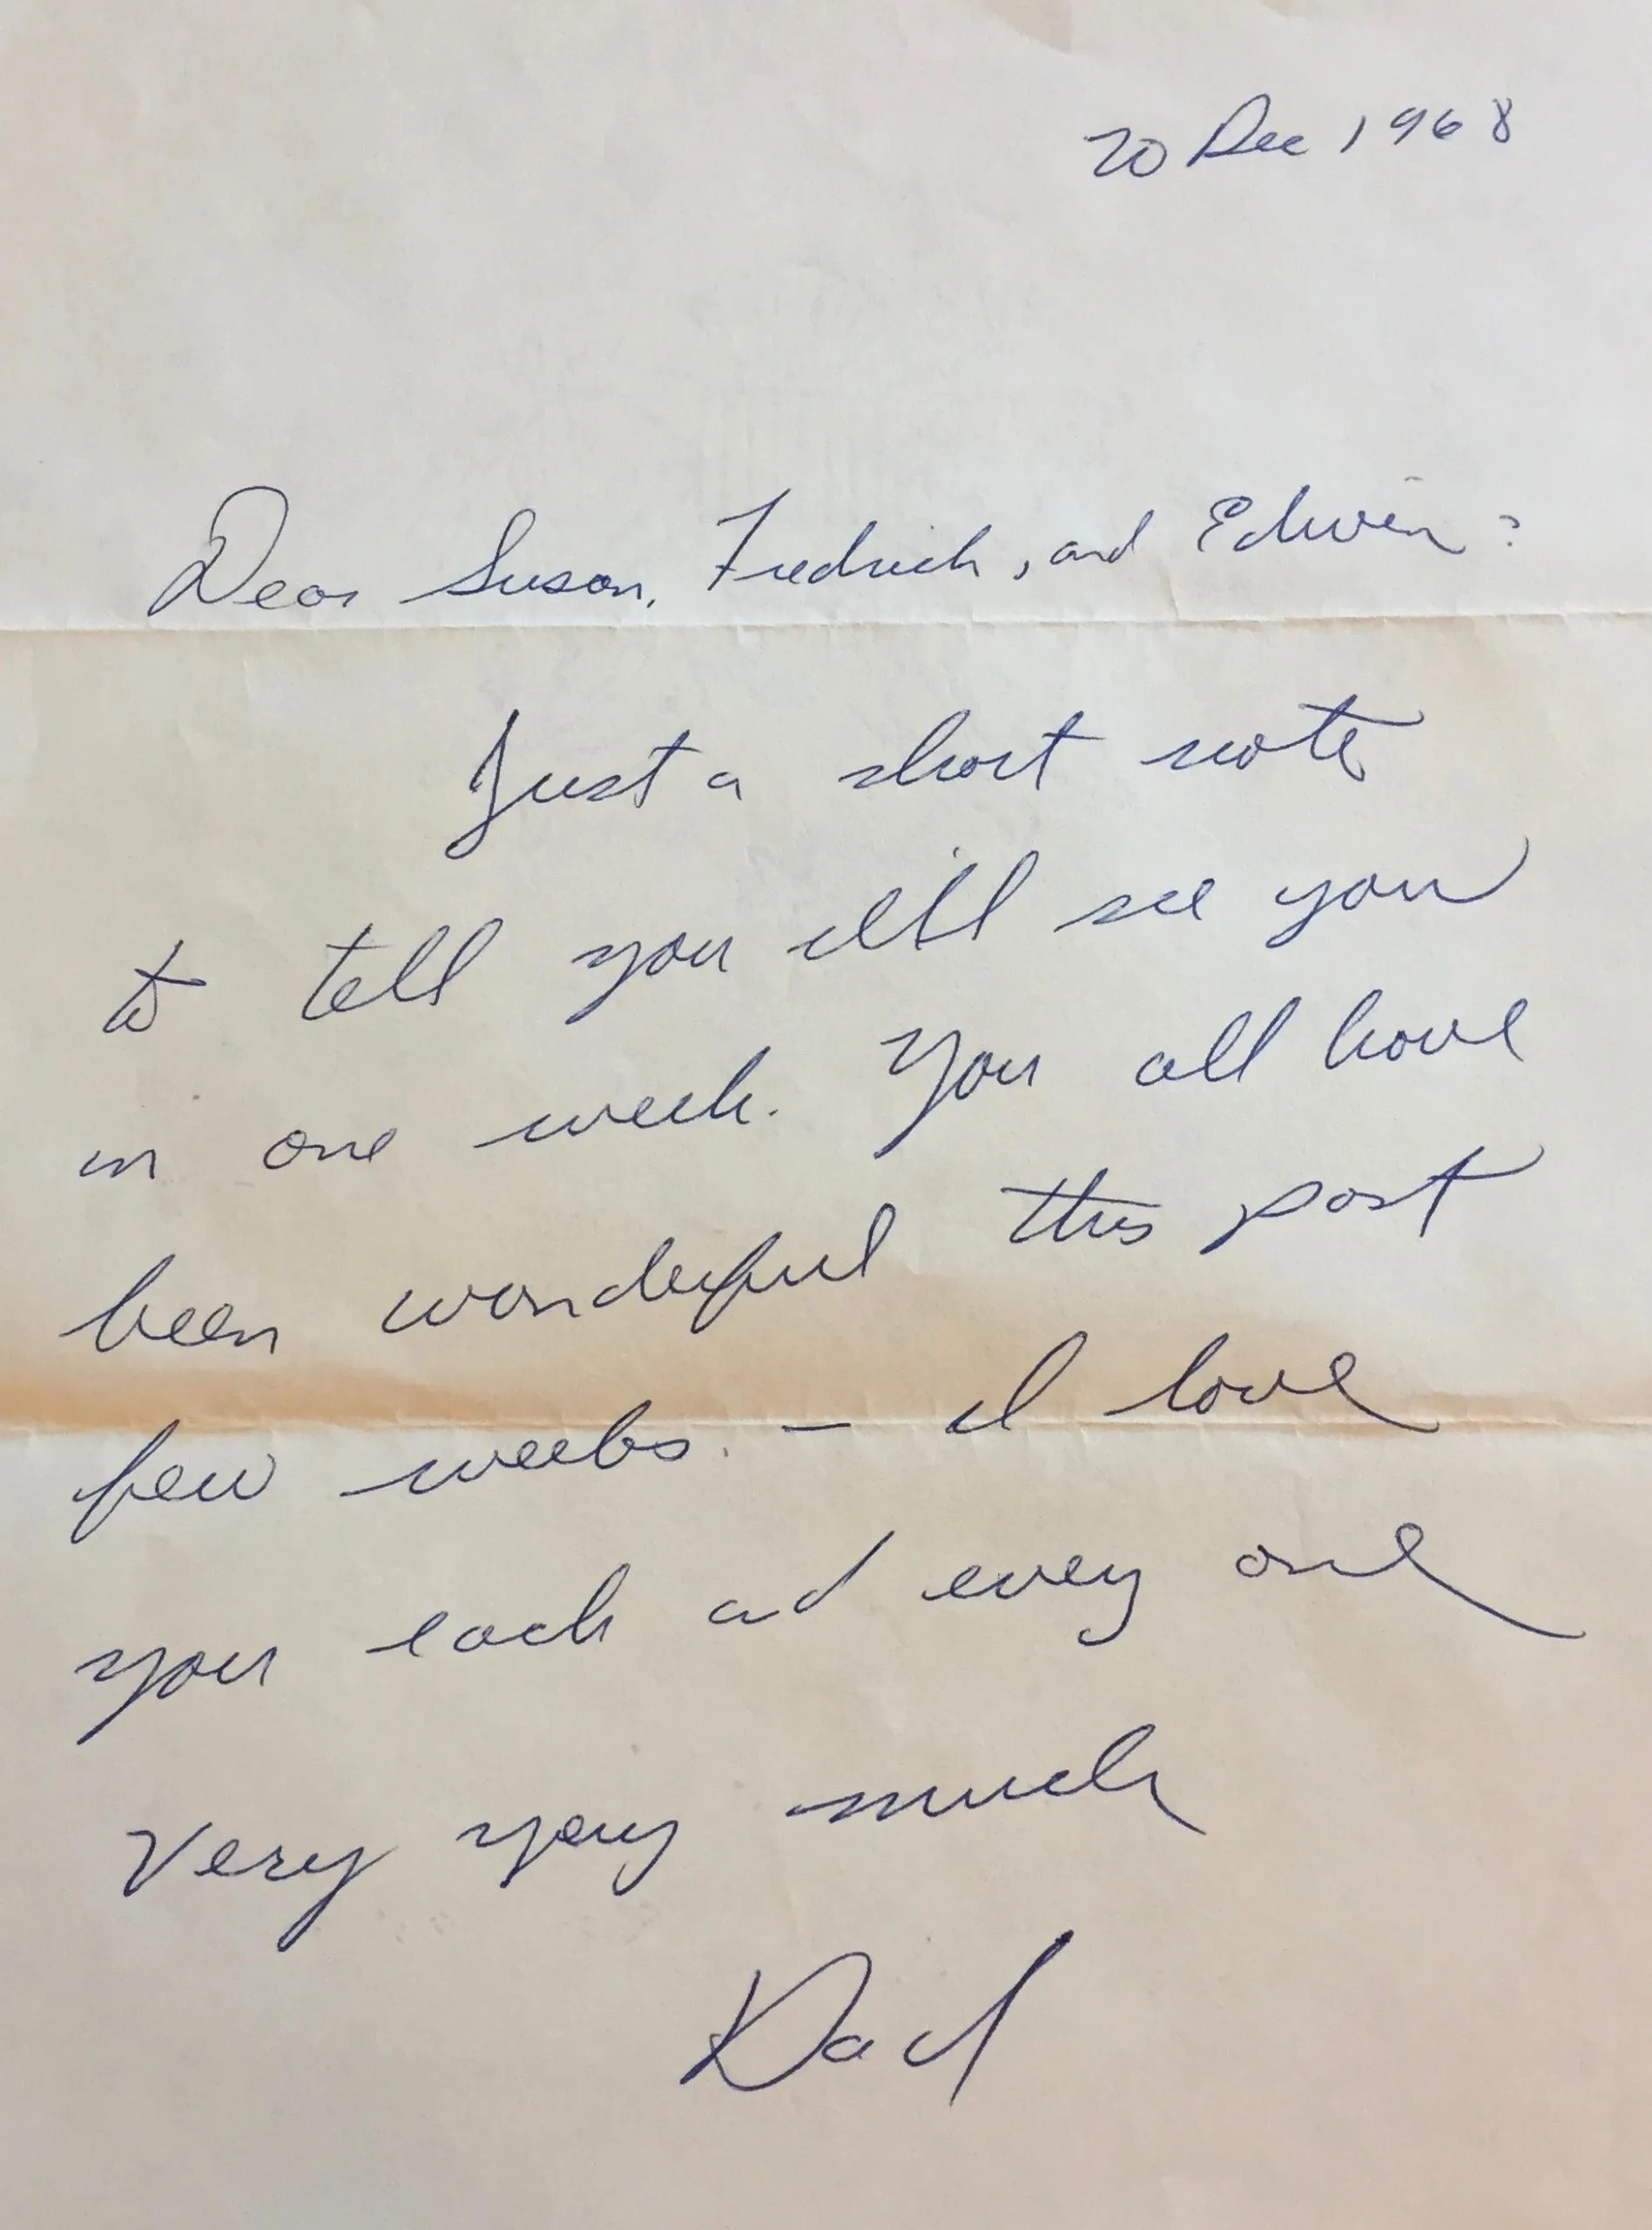 20 Dec 1968
Dear Susan, Fredrich, and Edwin:
Just a short note
to tell you I'll see you
in one week. You all have
been wonderful this past
few weeks. - I love
you each and every one
very very much
Dad